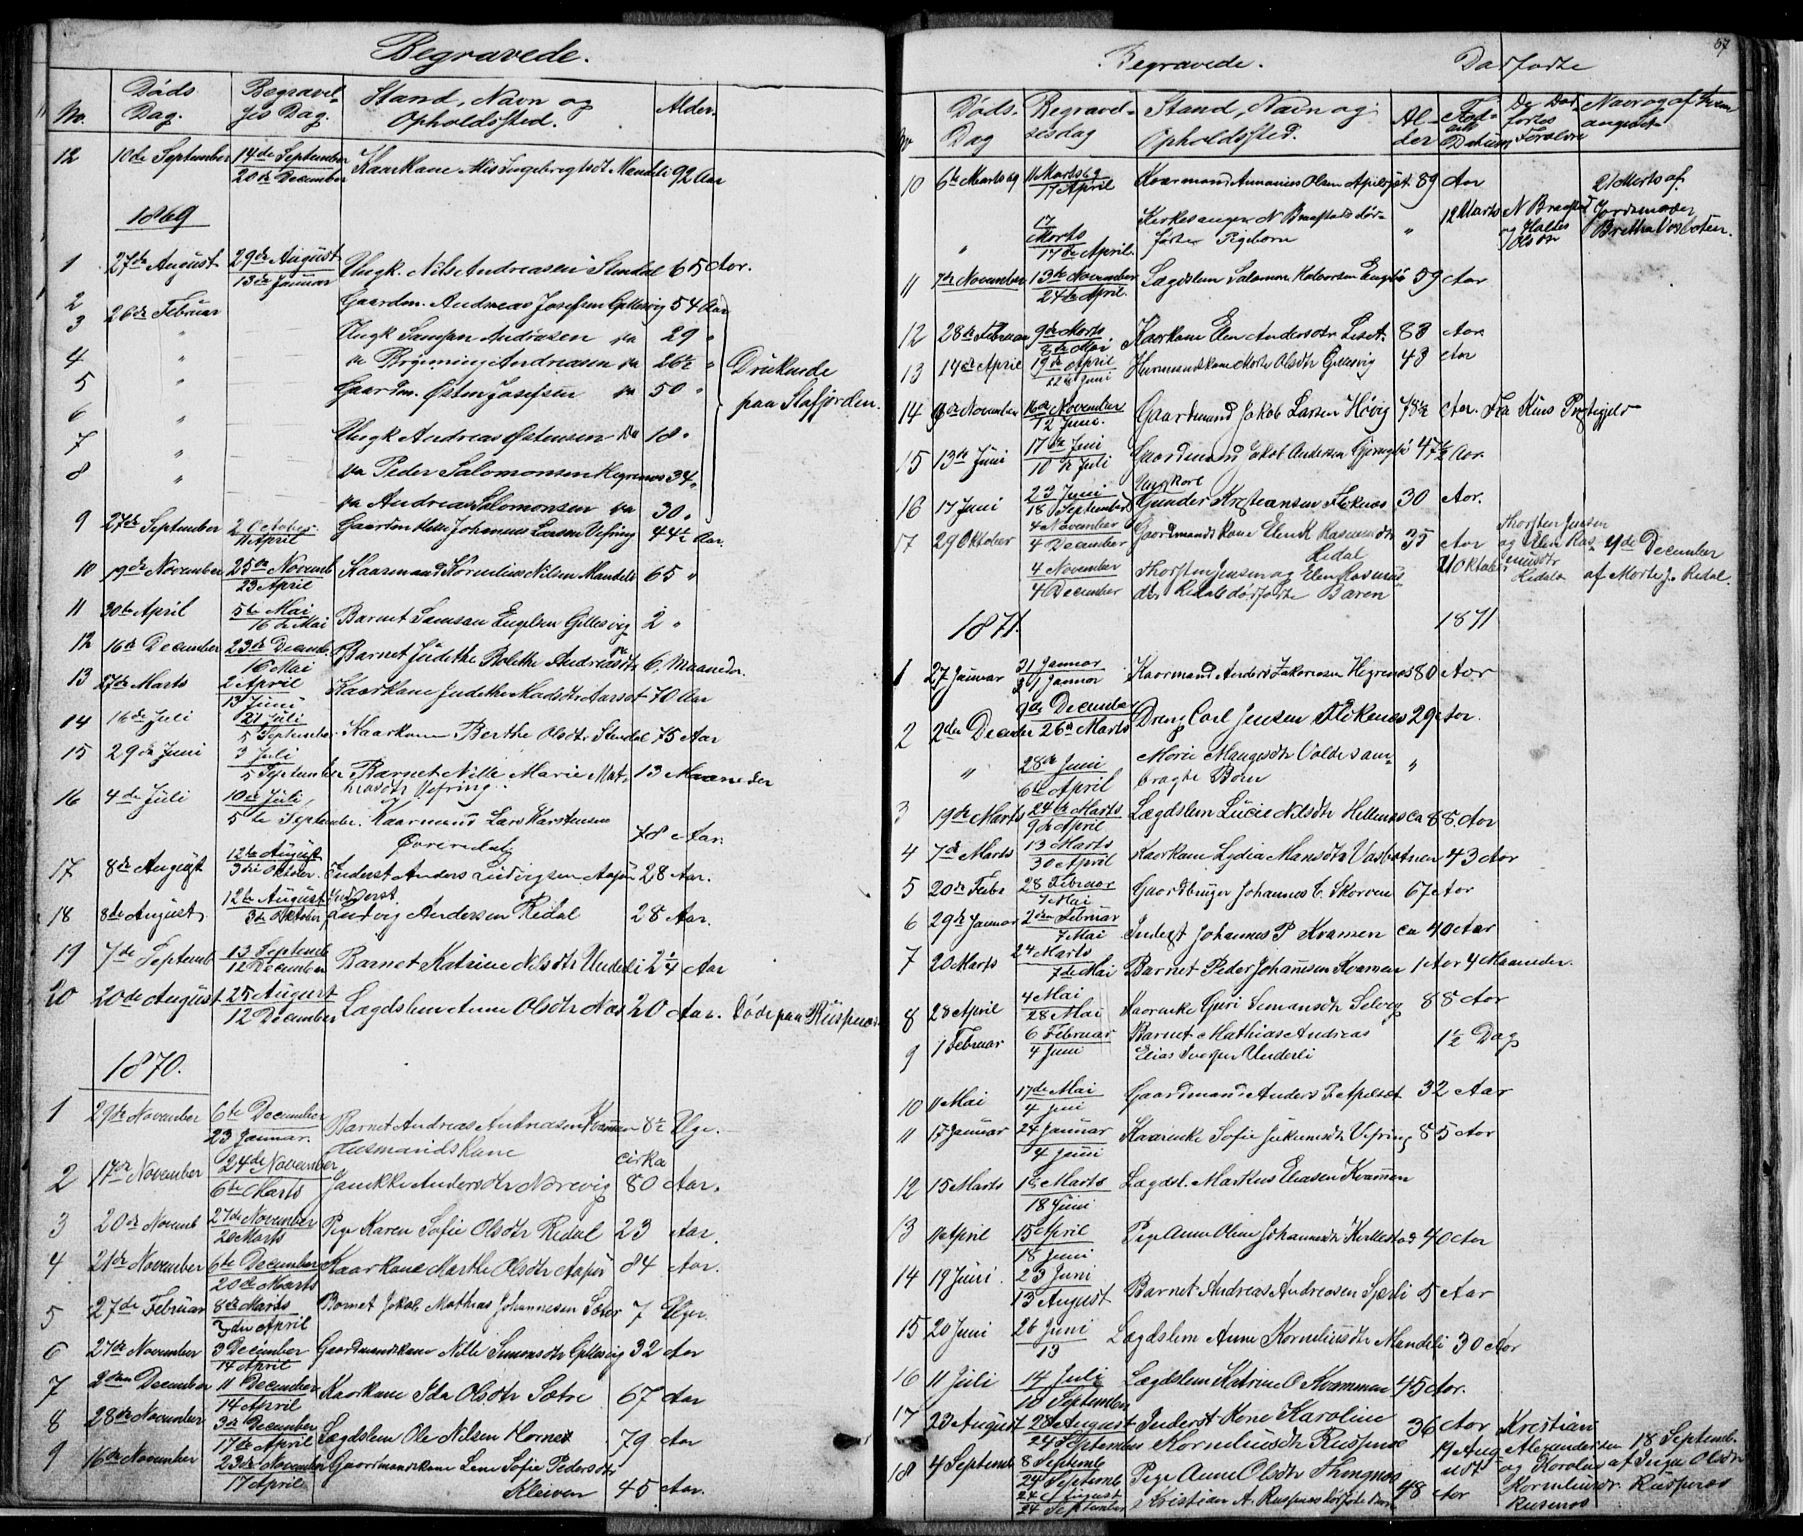 Begravede.
No. Døds Dag. Begravelses Dag. Stand, Navn og Opholdssted. Alder.
12 10de September 14de September / 20de December Kaarkane Mis Ingebregtsdt Mandeli 92 Aar
1869
1 27de August 29de August / 13de Januar Ungk. Nils Andreasen Stendal 65 Aar.
2 26de Februar Gaardm. Andreas Josefsen Gjllesvig 54 Aar
3 " Ungk Samsan Andreasen do 29 "
4 " do Brynning Andreasen do 26½ " Druknede
5 " Gaardm. Østen Josefsen do 50 " paa Stafjorden.
6 " Ungk Andreas Østensen do 18 "
7 " do Peder Salomonsen Hegrenes 34 "
8 " do Andreas Salomonsen do 30 "
9 27de September 2 October / 11 April Gaardm Johannes Larsen Vefring 44½ Aar.
10 19de November 25de Novemb / 23 April Kaarmand Kornelius Nilsen Mandeli 65 "
11 30te April 5te Mai / 16de Mai Barnet Samsan Engelsen Gjllesvig 2 "
12 16de December 23de Decemb. / 16 Mai Barnet Judithe Bolethe Andreasdt do 6 Maaneder.
13 27de Marts 2 April / 13 Juni Kaarkane Judithe Madsdt Aarset 70 Aar
14 16de Juli 21 Juli / 5 September. Kaarkane Berthe Olsdtr Stendal 75 Aar
15 29de Juni 3 Juli / 5 September Barnet Nille Marie Mat- 13 Maaneder
hiasdtr Vefring.
16 4de Juli 10de Juli, / 5te September. Kaarmand Lars Karstensen
78 Aar.
17 8de August 12te August / 3die Oktober. Inderst Anders Ludvigsen 28 Aar.
18 8de August 12te August / 3die Oktober Inderst. Ludvig Andersen Redal 28 Aar.
19 7de Septemb 13 Septemb / 12 December Barnet Katrine Nilsdtr Underli 2¼ Aar
20 20de August 25 August / 12 December Lægdslem Anne Olsdtr Nas 20 Aar. Døde paa Risspenæs
1870.
1 29de November 6te December / 23 Januar. Barnet Andreas Andreasen Kvamen 8½ Uge.
Husmandskane cirka
2 17de November 24de November / 6te Marts Janikke Andersdtr Norevig 80 Aar.
3 20de Novemb 27de November / 20 Marts Pige Karen Sofie Olsdtr Redal 23 Aar.
4 21de November 6te December / 20de Marts Kaarkane Marthe Olsdtr 84 Aar.
5 27de Februar 8de Marts / 3die April Barnet Jakob Mathias Johannesen Sæter 7 Uger.
6 27de November 3 December / 14 April Gaardmandskane Nille Simonsdtr Gjllesvig 32 Aar
7 2den December 11 December / 14 April Kaarkane Ida Olsdtr Sætre 67 Aar
8 28de November 3de December / 17te April Lægdslem Ole Nilsen Hornes 79 Aar
9 16de November 23de November / 17 April Gaardmandskane Lene Sofie Pedersdtr
Kleiven 45 Aar.
Begravede. Dødfødte 67
Døds- Dag Begravelsesdag Stand, Navn og Opholdssted. Alder Født Datum De Dødfødtes Forældre Naar og af hvem angivet
10 6te Marts 69 11 Marts 69 / 17 April Kaarmand Ananias Olsen Apelset 89 Aar
" 17 Marts / 14de April. Kirkesanger N Braastads død-
fødte Pigebarn " 12 Marts N Braastad og Hustru 21 Marts af Jordemoder Bretha Vasbotten.
11 7de November 13de November / 24de April. Lægdslem Salomon Halvorsen 59 Aar
12 28de Februar 9de Marts / 8de Mai Kaarkane Elen Andersdtr Liset. 83 Aar
13 14de April 19de April / 12te Juni Husmandskane Marte Olsdtr Gjllesvig 43 Aar
14 November 16de November / 12 Juni. Gaardmand Jakob Larsen Høvig Aar. Fra Kins Prestegjeld
15 13de Juni 17de Juni / 10de Juli Gaardmand Jakob Andersen 47½ Aar.
Ungkarl
16 17 Juni 23 Juni / 18 September Gunder Kristiansen Flekenes 30 Aar.
17 29 Oktober 4 November / 4 December Gaardmandskone Elen K Rasmusdtr 35 Aar
Redal
4 November / 4 December Thorsten Jensen og Elen Rasmus-
dtr Redals dødfødte Baren 21 Oktober Thorsten Jensen og Elen Rasmusdtr Redal 4de December af Morte J. Redal
1871. 1871
1 27 Januar 31 Januar / 31 Januar Kaarmand Anders Zakarnsen Hegrenes 80 Aar
2 2den December 9de December / 26de Marts Dreng Carl Jensen Flekenes 29 Aar.
" 28de Juni / 6te April Marie Mangsdtr Voldes am-
bragte Barn "
3 19de Marts 24te Marts / 9de April Lægdslem Lucie Nilsdtr Hellenes ca 88 Aar
4 7de Marts 13 Marts / 30 April Kaarkane Lydia Mansdtr Vasbotnen 43 Aar
5 20de Febr 28 Februar / 7 Mai Gaardbruger Johannes C. Skorven 67 Aar
6 29de Januar 2den Februar / 7 Mai Inderst Johannes P Kvamen ca 40 Aar
7 20 Marts 24 Marts / 7de Mai Barnet Peder Johannesen Kvamen 1 Aar 4 Maaneder.
8 28 April 4 Mai / 28 Mai Kaarenke Guri Simansdtr Solvig 88 Aar
9 1 Februar 6 Februar / 4 Juni Barnet Mathias Andreas 1½ Dag
Elias Iversen Underli
10 11 Mai 17de Mai / 4 Juni Gaardmand Anders P Apelset 32 Aar
11 17 Januar 24 Januar / 4 Juni Kaarenke Sofie Vefring 85 Aar
12 15 Marts 18 Marts / 18 Juni Lægdsl. Markus Eliasen Kvamen
13 11 April 15 April / 18 Juni Pige Anne Oline Johannesdtr 40 Aar
14 19 Juni. 23 Juni / 13 August Barnet Andreas Andreasen 5 Aar
15 20 Juni 26 Juni / 13 Lægdslem Anne Korneliusdtr Mandeli 30 Aar
16 11 Juli 14 Juli / 10 September Lægdslem Katrine O Kvammen 45 Aar.
17 23 August 28 August / 24 September Inderst Kone Karoline
Korneliusdtr Risspenæs 36 Aar 19 August Kristian Alexandersen og Karoline Korneliusdr. Risenæs 18 Septemb af Inger Olsdtr Rispenæs
18 4 Septemb 8 Septemb / 24 Septemb Pige Anne Olsdtr Thingnes 48 Aar
24 August / 24 September Kristian A. Ruspenes dødfødte Barn